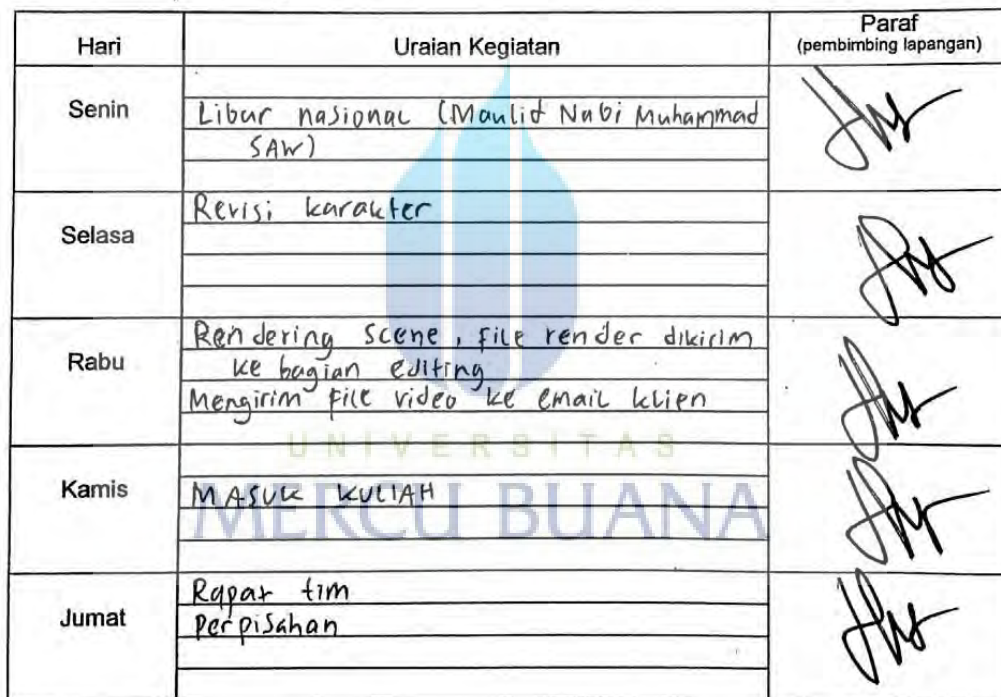 Hari Uraian Kegiatan Paraf
(pembimbing lapangan)
Senin
Libur nasional (Maulid Nabi Muhammad
SAW)
Selasa
Revisi karakter
Rabu
Rendering scene, file render dikirim
ke bagian editing
Mengirim file video ke email klien
UNIVERSITAS
MERCU BUANA
Kamis
MASUK KULIAH
Jumat
Rapat tim
Perpisahan